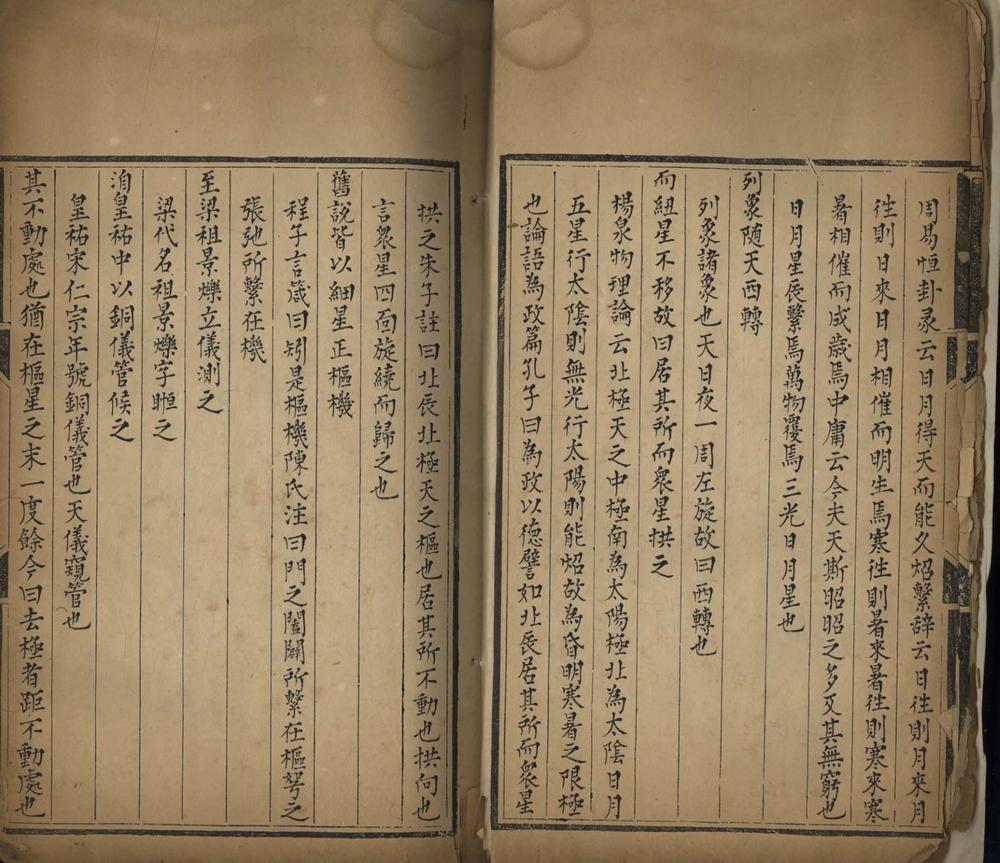 周易恒卦彖云日月得天而能久炤繫辞云日徃則月來月
徃則日來日月相催而明生焉寒徃則暑來暑徃則寒來寒
暑相催而成歲焉中庸云今夫天斯昭昭之多及其無窮也
日月星辰繫焉萬物覆焉三光日月星也
列象随天西轉
列象諸象也天日夜一周左旋故曰西轉也
而紐星不移故曰居其所而衆星拱之
楊泉物理論云北極天之中極南為太陽極北為太陰日月
五星行太陰則無光行太陽則能炤故為昏明寒暑之限極
也論語為政篇孔子曰為政以德譬如北辰居其所而衆星
拱之朱子註曰北辰北極天之樞也居其所不動也拱向也
言衆星四面旋繞而歸之也
舊說皆以細星正樞機
程子言箴曰矧是樞機陳氏注曰門之闔闢所繫在樞弩之
張弛所繫在機
至梁祖景爍立儀測之
梁代名祖景爍字暅之
洎皇祐中以銅儀管候之
皇祐宋仁宗年號銅儀管也天儀窺管也
其不動處也猶在樞星之末一度餘今曰去極者距不動處也